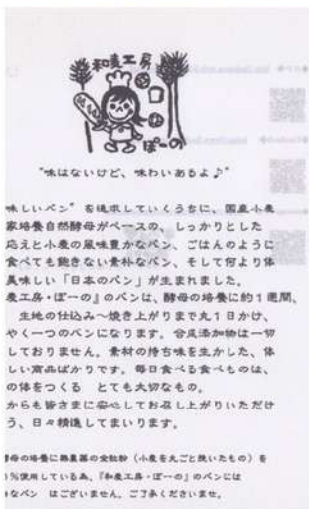 和麦工房
ぽーの
"味はないけど、味わいあるよ♪"
味しいパン" を追求していくうちに、国産小麦
家培養自然酵母がベースの、しっかりとした
応えと小麦の風味豊かなパン、ごはんのように
食べても飽きない素朴なパン、そして何より体
美味しい「日本のパン」が生まれました。
麦工房・ぽーの』のパンは、酵母の培養に約1週間、
生地の仕込み～焼き上がりまで丸1日かけ、
やく一つのパンになります。合成添加物は一切
しておりません。素材の持ち味を生かした、体
しい商品ばかりです。毎日食べる食べものは、
の体をつくる とても大切なもの。
からも皆さまに安心してお召し上がりいただけ
う、日々精進してまいります。
酵母の培養に無農薬の全粒粉（小麦を丸ごと挽いたもの）を
%使用している為、『和麦工房・ぽーの』のパンには
なパン はございません。ご了承くださいませ。